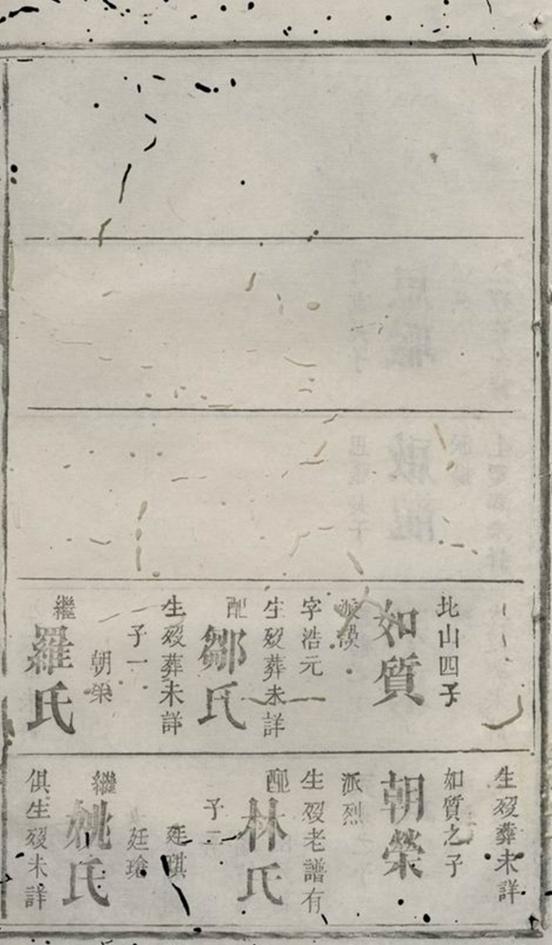 北山四子
如質
派謨
字浩元
生歿葬未詳
配
鄒氏
生歿葬未詳
子一
朝榮
繼
羅氏
生歿葬未詳
如質之子
朝榮
派烈
生歿老譜有
配
林氏
子二
廷琪
廷瑲
繼
姚氏
俱生歿未詳